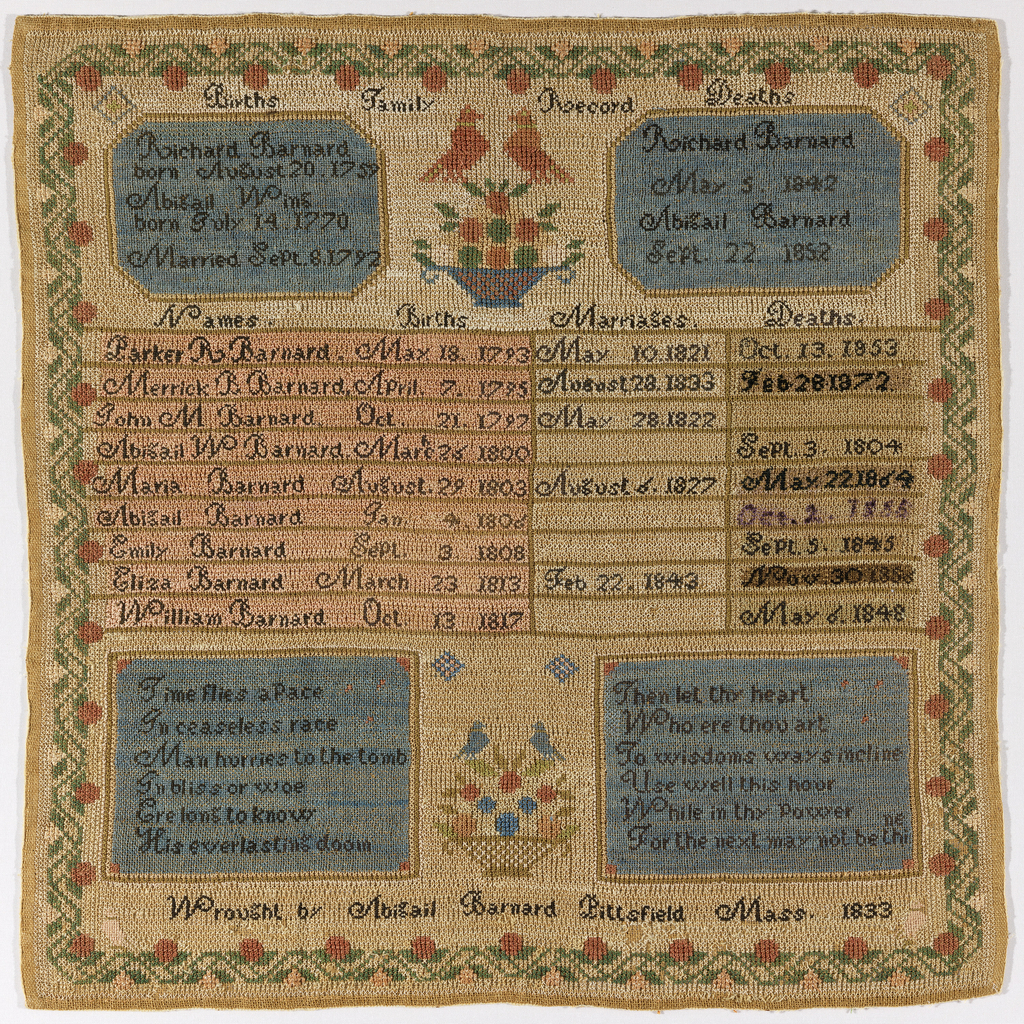 Births Family Record Deaths
Richard Barnard
born August 20. 1759
Abigail Wins
born July 14. 1770
Married Sept. 8. 1792
Richard Barnard
May 5. 1842
Abigail Barnard
Sept. 22 1852
Names. Births Marriages. Deaths.
Parker R Barnard. May 18. 1793 May 10. 1821 Oct. 13. 1853
Merrick P. Barnard, April. 7. 1795 August 28. 1833 Feb 28 1872
John M Barnard Oct. 21. 1797 May 28. 1822
Abigail W Barnard Marc 26 1800 Sept. 3. 1804
Maria Barnard August. 29 1803 August 6. 1827 May. 22 1864
Abigail Barnard Jan. 4. 1806 Oct. 2.
Emily Barnard Sept. 3 1808 Sept. 5. 1845
Eliza Barnard March 23 1813 Feb 22. 1843. Nov. 30
William Barnard Oct 13 1817 May 6. 1848
Time flies a Pace
In ceaseless race
Man hurries to the tomb
In bliss or woe
Ere long to know
His everlasting doom
Then let thy heart
Who ere thou art
To wisdoms ways incline
Use well this hour
While in thy Power
ne
For the next may not be thi
Wrought by Abigail Barnard Pittsfield Mass. 1833